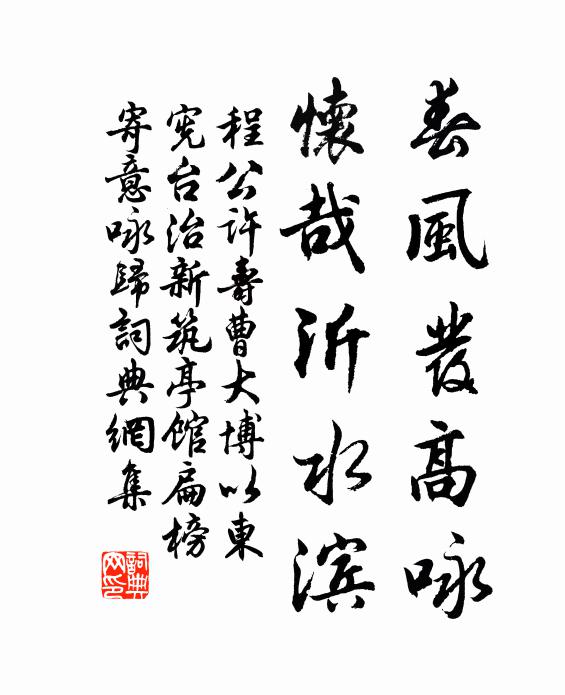 春風發高咏
懷哉沂水滨
程公許壽曹大博以東
宪台治新筑亭馆扁榜
寄意咏歸詞典網集
詞典网印